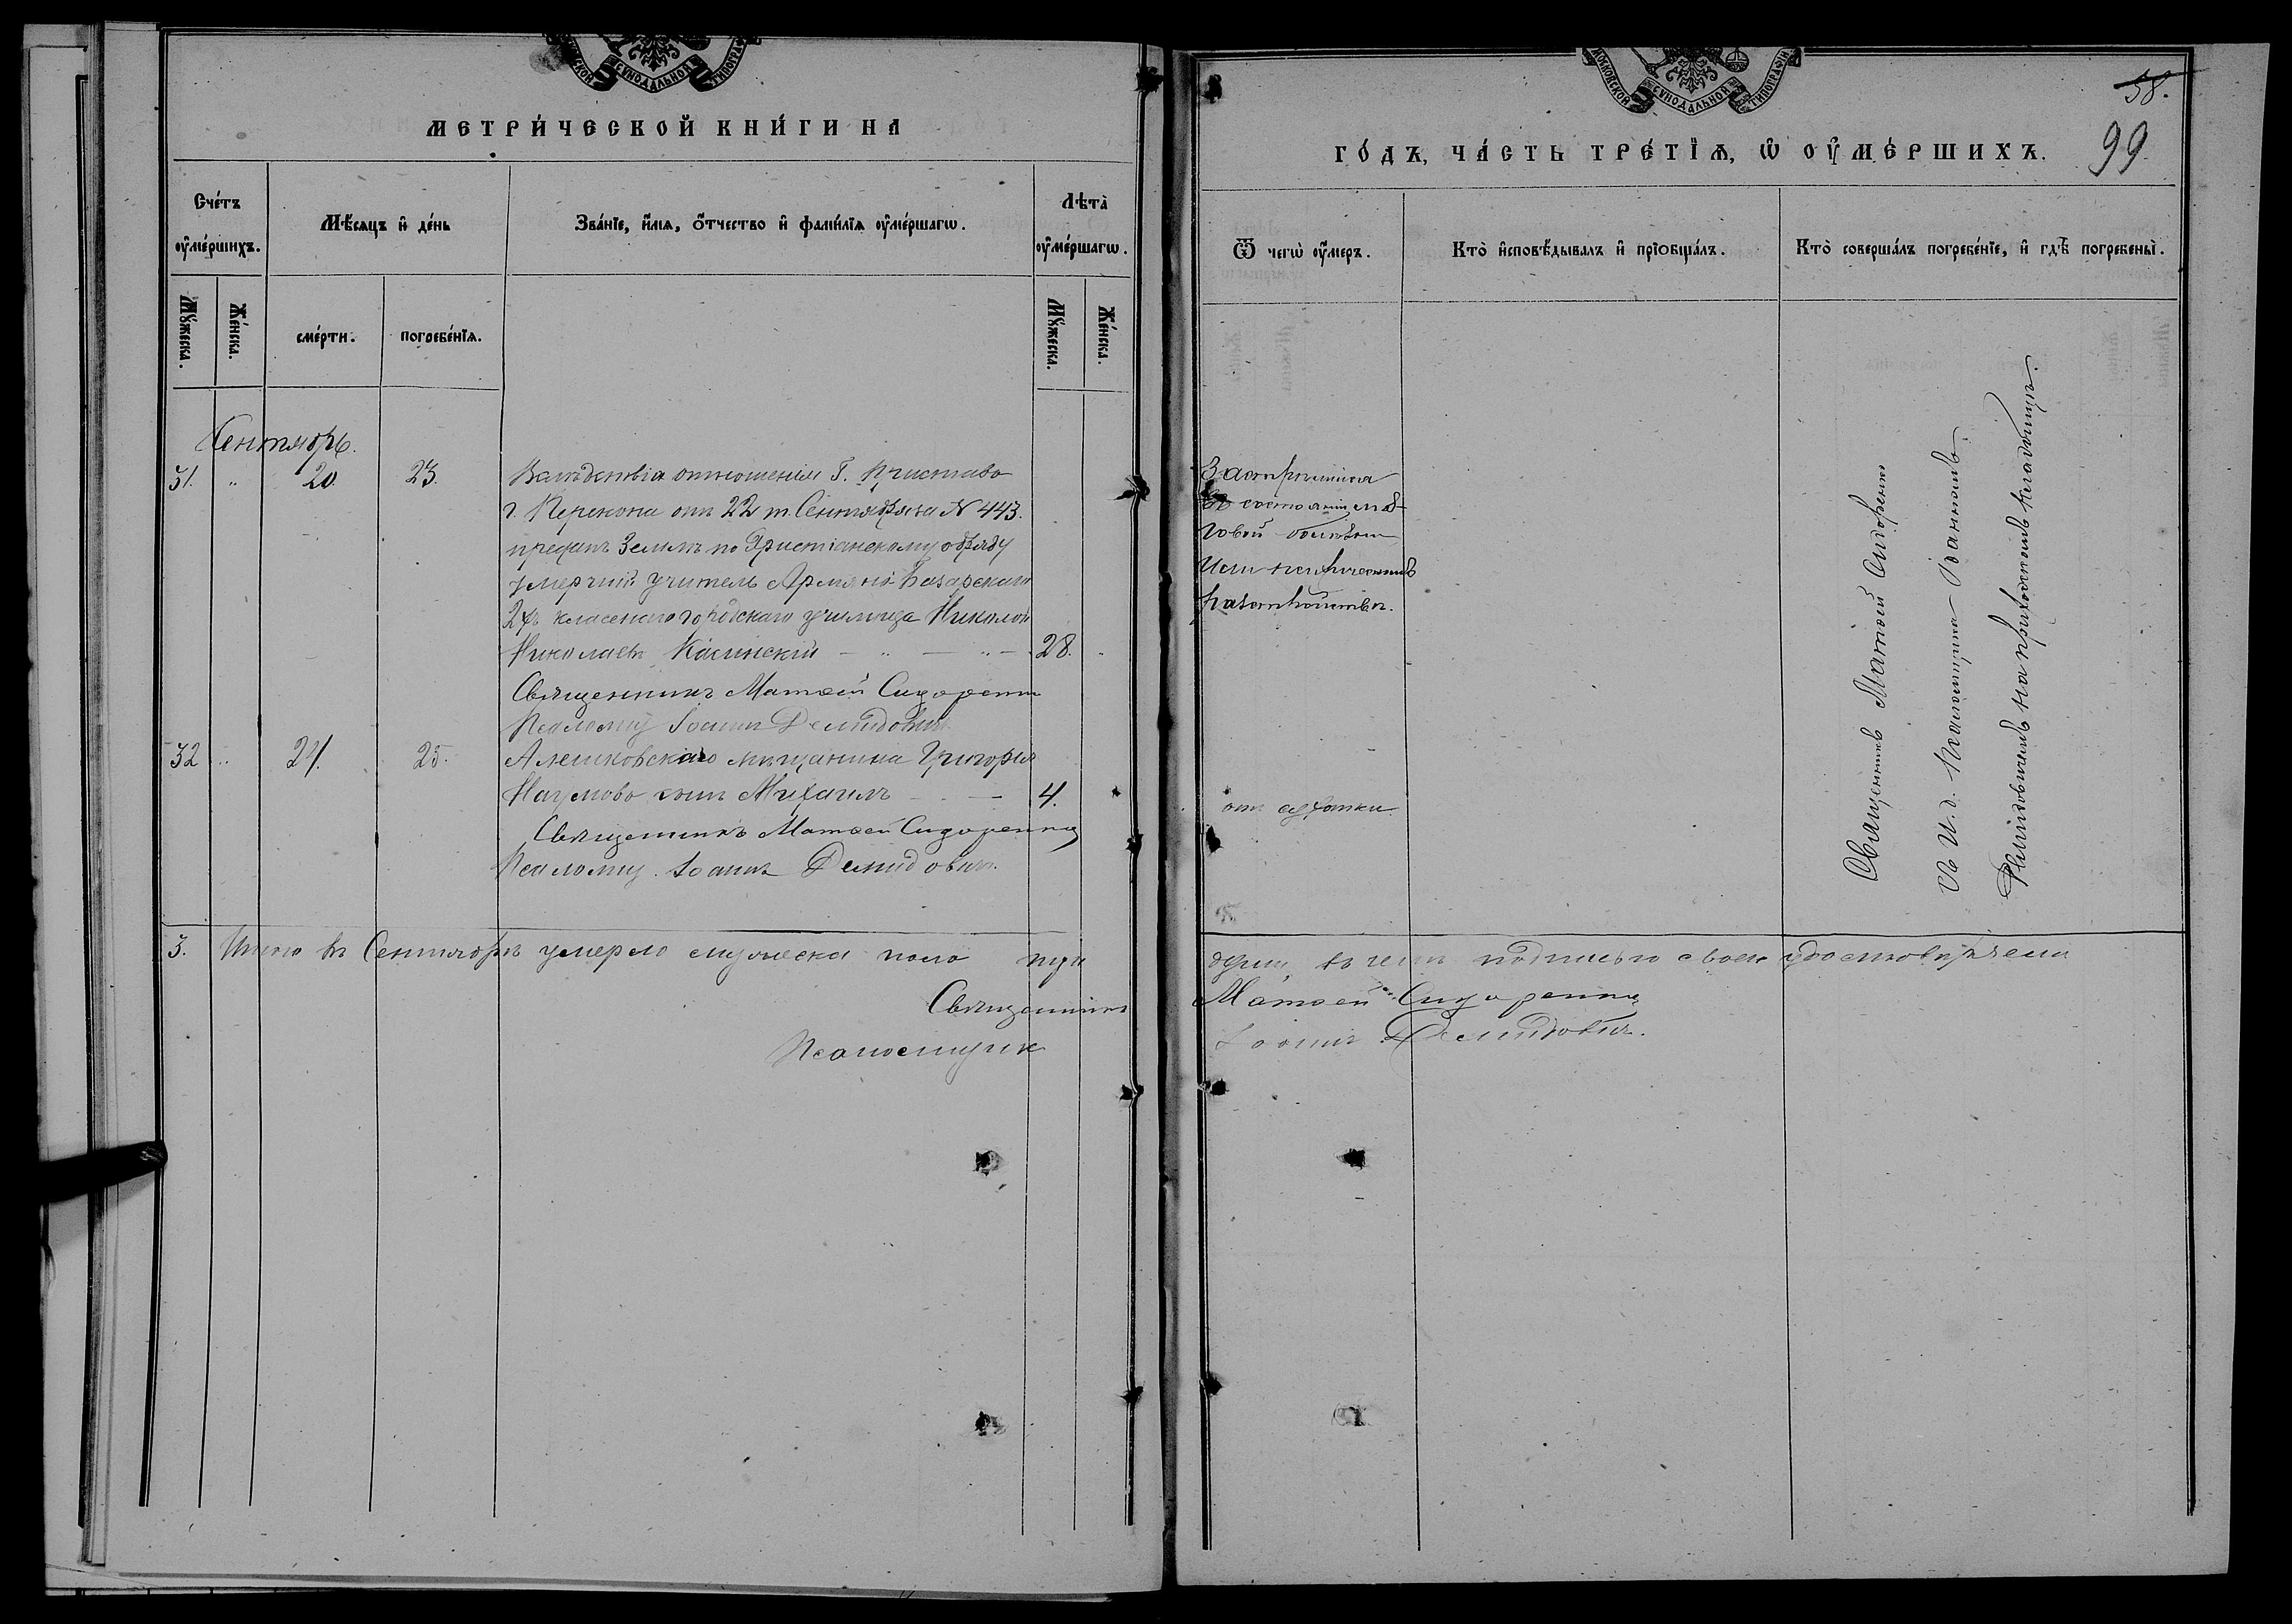 МОСКОВСКОЙ СѴНОДАЛЬНОЙ ТИПОГРАФІИ
МЕТРИ́ЧЕСКОЙ КНИ́ГИ НА
Сче́тъ оу҆ме́ршихъ.
Мѣ́сяцъ и҆ де́нь
Зва́нїе, и҆́мѧ, ѻ҆́тчество и҆ фами́лїѧ оу҆ме́ршагѡ.
Лѣта̀ оу҆ме́ршагѡ.
Мꙋ́жеска.
Же́нска.
сме́рти.
погребе́нїѧ.
Мꙋ́жеска.
Же́нска.
Сентябрь.
31. " 20. 23. Вслѣдствіе отношенія Г. Пристава
г. Перекопа отъ 22 т. Сентября за № 443.
преданъ землѣ по Христіанскому обряду
умершій учитель Армяно-Базарскаго
2хъ класснаго городскаго училища Николай
Николаевъ Касинскій — " — " — 28.
Священникъ Матѳей Сидоренко
Псаломщ Іоаннъ Демидовичъ
32 " 24. 25. Алешковскаго мѣщанина Григорія
Наумова сынъ Михаилъ — 4.
Священникъ Матѳей Сидоренко
Псаломщ. Іоаннъ Демидовичъ.
3. Итого въ Сентябрѣ умерло мужеска пола три
Священникъ
Псаломщик
МОСКОВСКОЙ СѴНОДАЛЬНОЙ ТИПОГРАФІИ
58.
99
ГО́ДЪ, ЧА́СТЬ ТРЕ́ТЇѦ, Ѡ҆ ОУ҆МЕ́РШИХЪ.
Ѿ чегѡ̀ оу҆́меръ.
Кто̀ и҆сповѣ́дывалъ и҆ прїобща́лъ.
Кто̀ соверша́лъ погребе́нїе, и҆ гдѣ̀ погребены̀.
Застрѣлился
въ состояніи моз-
говой болѣзни
или психическаго
разстройства.
отъ сухотки
Священникъ Матѳей Сидоренко
съ И. д. Псаломщика Іоанномъ
Демидовичемъ на приходскомъ кладбищѣ.
души, въ чемъ подписью своею удостовѣряемъ
Матѳей Сидоренко
Іоаннъ Демидовичъ.